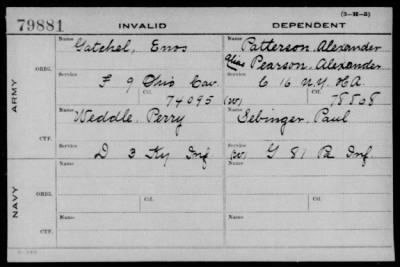 (3-H-3)
79881 INVALID DEPENDENT
ARMY
NAVY
ORIG.
CTF.
ORIG.
CTF.
Name Gatchel, Enos
Name Patterson, Alexander
alias Pearson, Alexander
Service F 9 Ohio Cav.
Service C 16 N.Y. H A
Ctf. 74095
(W) Ctf. 78508
Name Weddle, Perry
Name Sebinger, Paul
Service D 3 Ky Inf
Service (W) G 81 Pa Inf
Name
Ctf.
Name
Ctf.
Service
Service
Name
Name
Service
Service